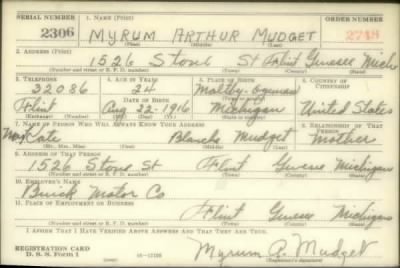 SERIAL NUMBER 1. NAME (Print) ORDER NUMBER
2306 MYRUM ARTHUR MUDGET 2718
(First) (Middle) (Last)
2. ADDRESS (Print)
1526 Stone St Flint Genesee Mich
(Number and street or R. F. D. number) (Town) (County) (State)
3. TELEPHONE 4. AGE IN YEARS 5. PLACE OF BIRTH 6. COUNTRY OF CITIZENSHIP
32086 24 Maltby
Flint DATE OF BIRTH
Aug 22-1916 Michigan United States
(Exchange) (Number) (Mo.) (Day) (Yr.) (State or country)
7. NAME OF PERSON WHO WILL ALWAYS KNOW YOUR ADDRESS 8. RELATIONSHIP OF THAT PERSON
Mrs Blanche Mudget Mother
(Mr., Mrs., Miss) (First) (Middle) (Last)
9. ADDRESS OF THAT PERSON
1526 Stone St Flint Genesee Michigan
(Number and street or R. F. D. number) (Town) (County) (State)
10. EMPLOYER'S NAME
Buick Motor Co
11. PLACE OF EMPLOYMENT OR BUSINESS
Flint Genesee Michigan
(Number and street or R. F. D. number) (Town) (County) (State)
I AFFIRM THAT I HAVE VERIFIED ABOVE ANSWERS AND THAT THEY ARE TRUE.
REGISTRATION CARD
D. S. S. Form 1 Myrum A. Mudget